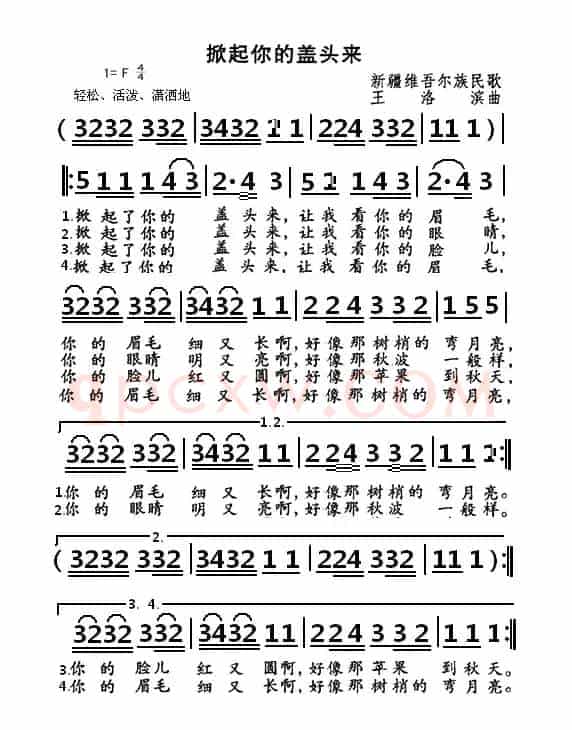 掀起你的盖头来
1= F 4/4
新疆维吾尔族民歌
轻松、活泼、潇洒地
王 洛 滨 曲
( 3232 332 | 3432 1 1 | 224 332 | 11 1 )
‖: 5 1 1 1 4 3 | 2· 4 3 | 5 1 1 4 3 | 2· 4 3 |
1.掀 起了你的 盖 头来,让我 看你的 眉 毛,
2.掀 起了你的 盖 头来,让我 看你的 眼 睛,
3.掀 起了你的 盖 头来,让我 看你的 脸 儿,
4.掀 起了你的 盖 头来,让我 看你的 眉 毛,
3232 332 | 3432 1 1 | 2 2 4 3 3 2 | 1 5 5 |
你 的 眉毛 细 又 长啊,好像那树梢的 弯月亮,
你 的 眼睛 明 又 亮啊,好像那秋波 一般样,
你 的 脸儿 红 又 圆啊,好像那苹果 到秋天,
你 的 眉毛 细 又 长啊,好像那树梢的 弯月亮,
qpcxw.COM
1.2.
3232 332 | 3432 1 1 | 2 2 4 3 3 2 | 1 1 1 :‖
1.你 的 眉毛 细 又 长啊,好像那树梢的 弯月亮。
2.你 的 眼睛 明 又 亮啊,好像那秋波 一般样。
2.
( 3232 332 | 3432 1 1 | 224 332 | 11 1 ) :‖
3. 4.
3232 332 | 3432 1 1 | 2 2 4 3 3 2 | 1 1 1 :‖
3.你 的 脸儿 红 又 圆啊,好像那苹果 到秋天。
4.你 的 眉毛 细 又 长啊,好像那树梢的 弯月亮。